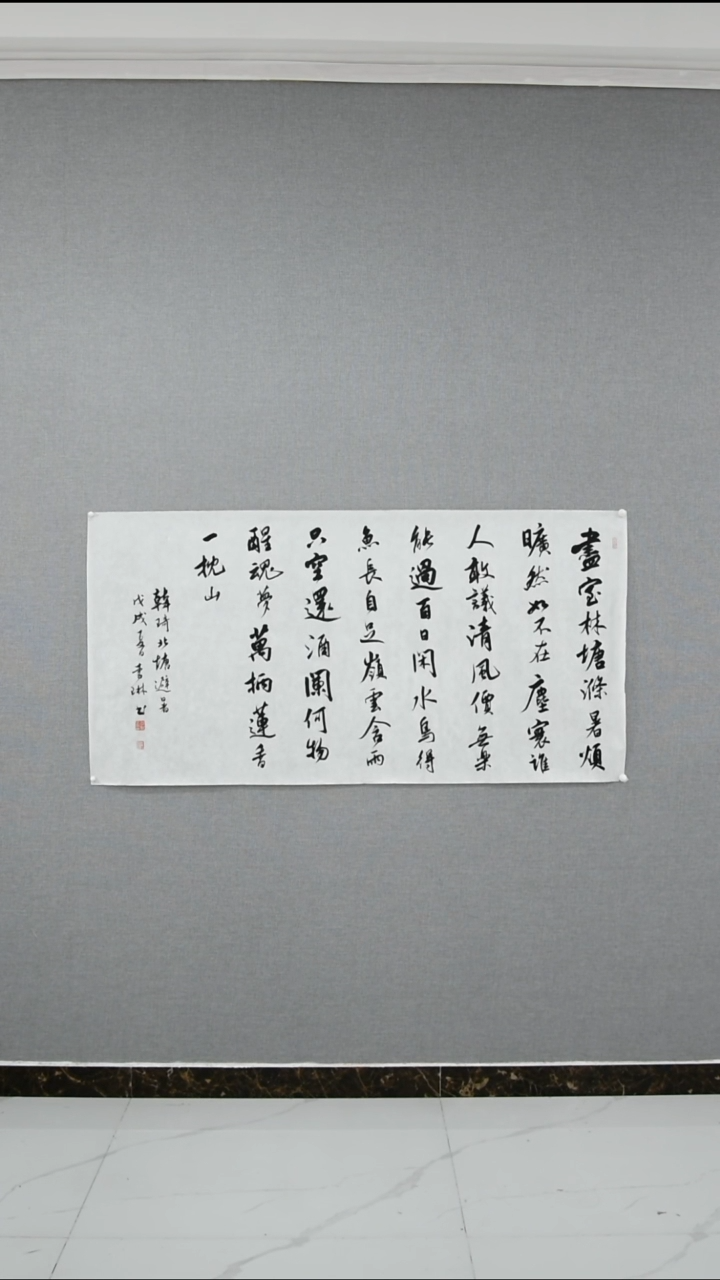 盡室林塘滌暑煩
曠然如不在塵寰誰
人敢議清風價無樂
能過百日閑水鳥得
魚長自足嶺雲含雨
只空還酒闌何物
醒魂夢萬柄蓮香
一枕山
韓琦北塘避暑
戊戌夏 琳书